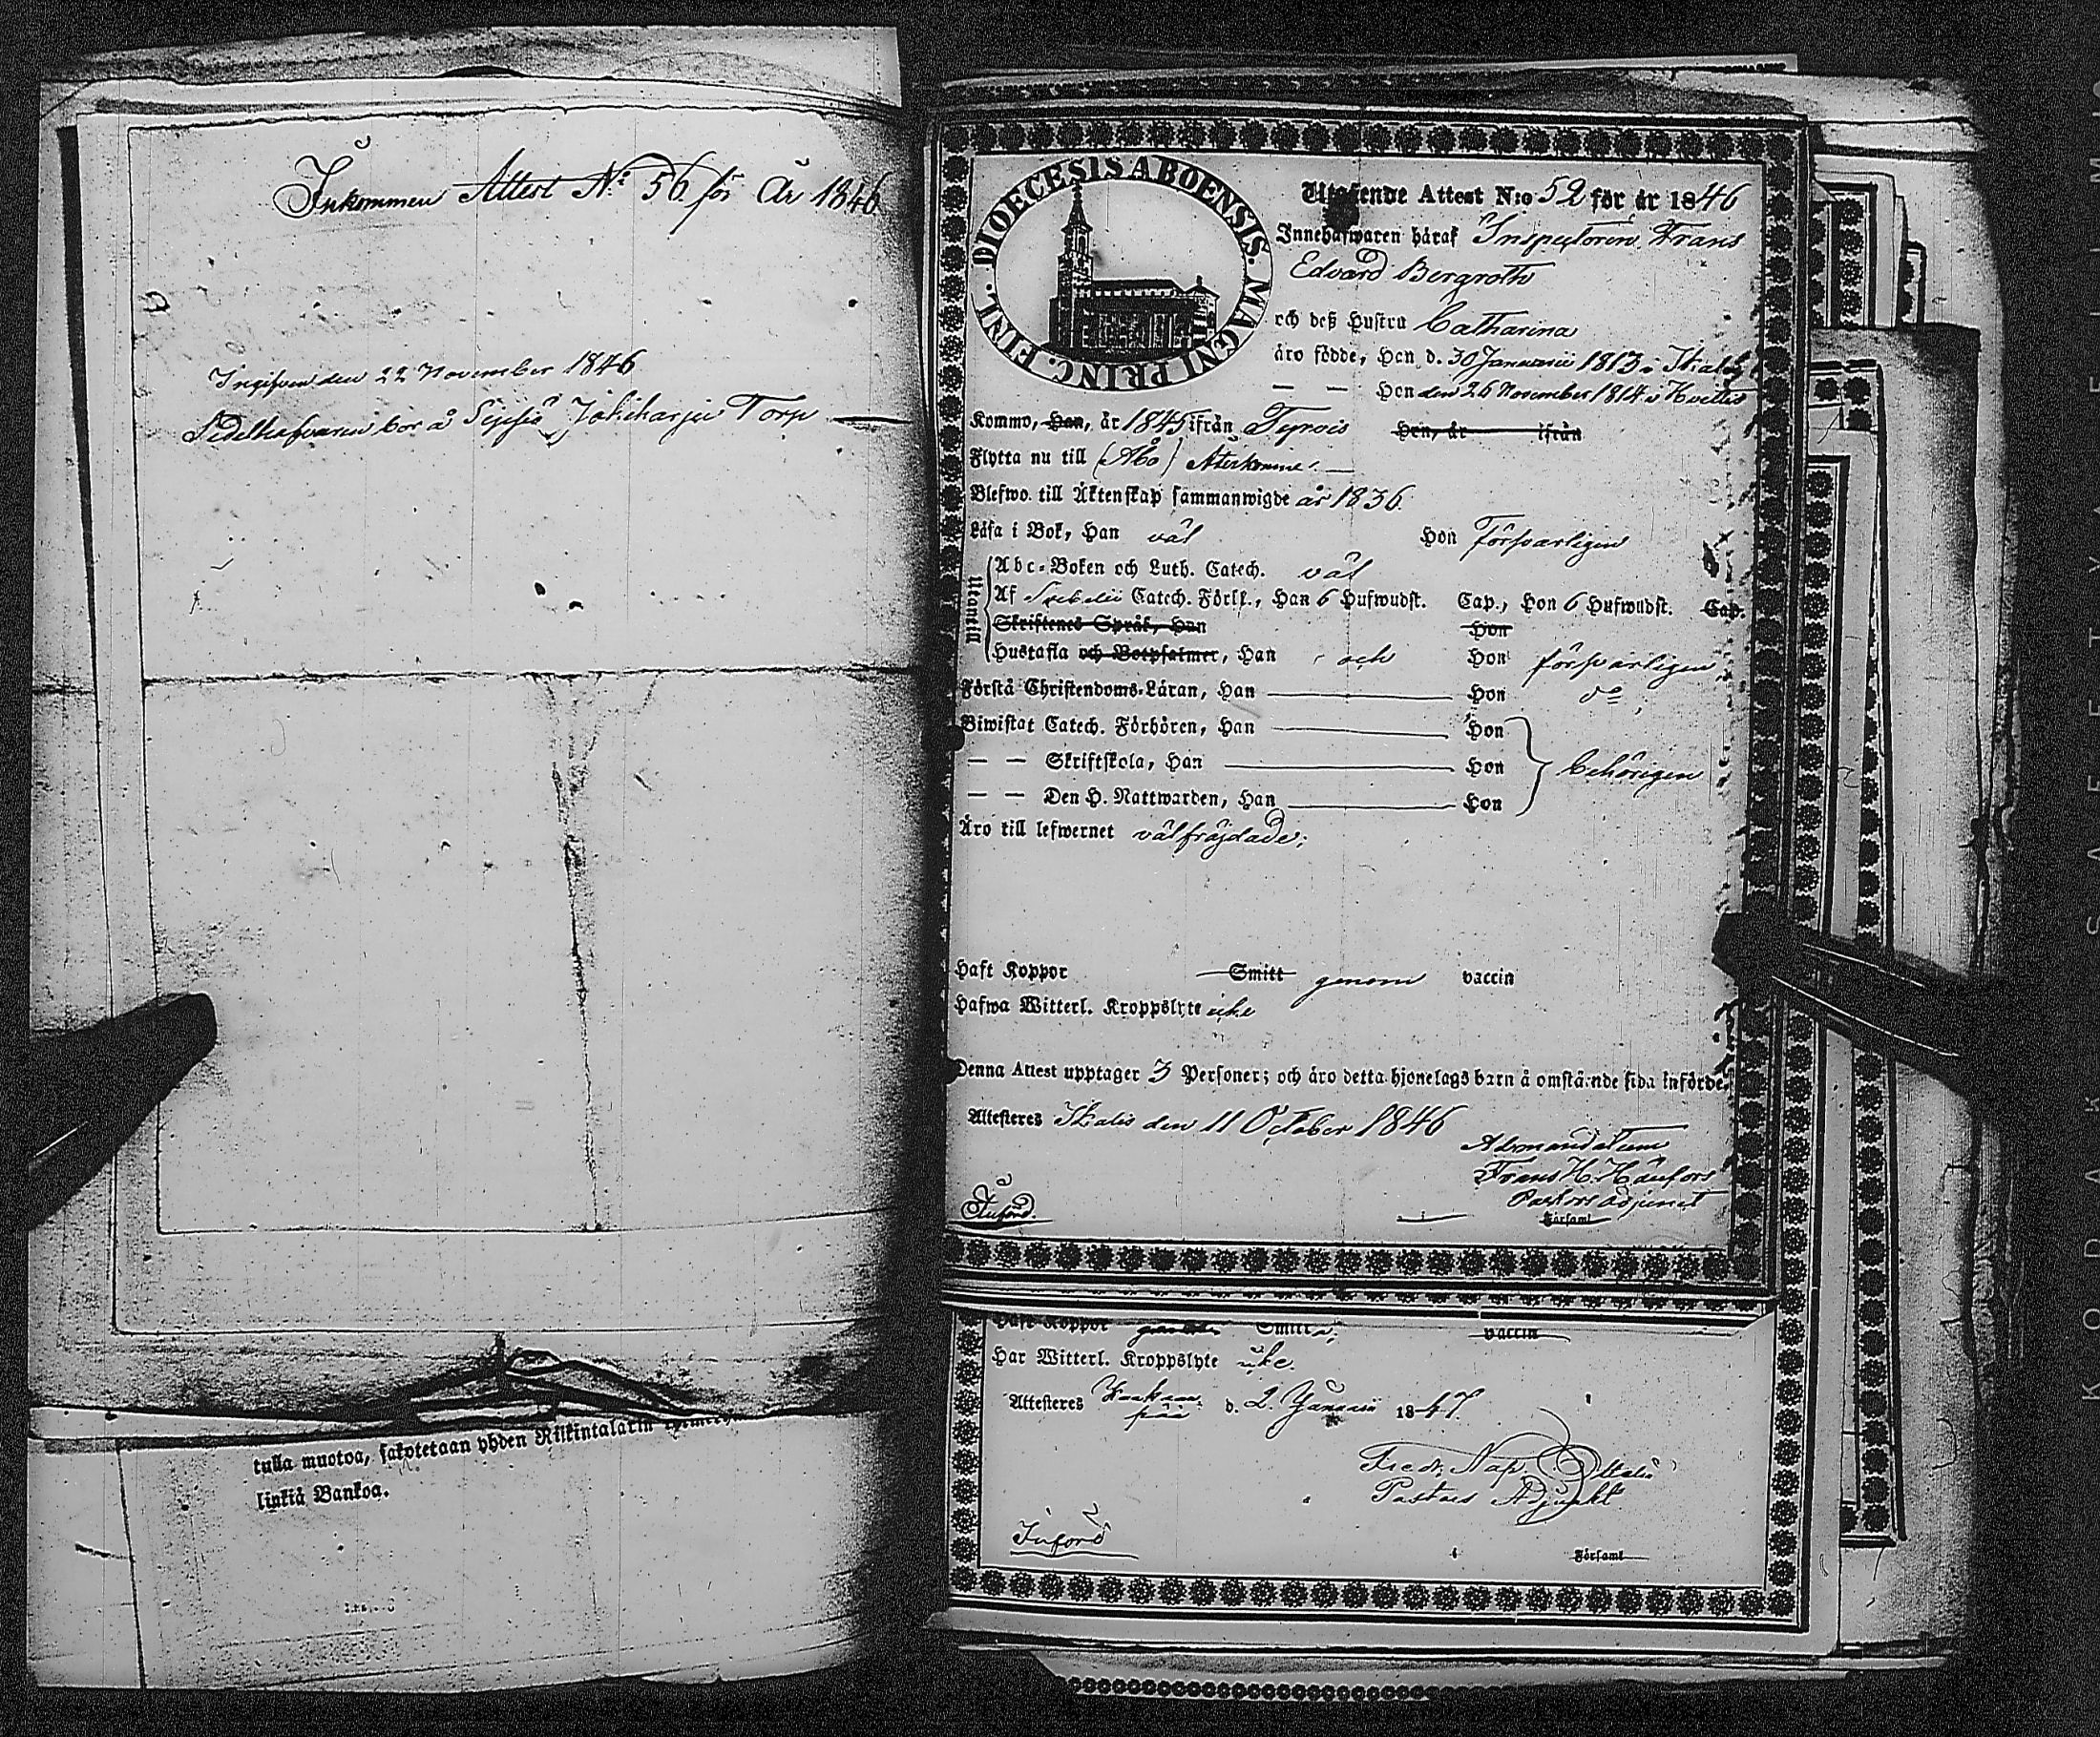 Inkommen Attest No: 56 för År 1846
Ingifven den 22 November 1846
Sedelhafvaren bor å Torp
DIOECESIS ABOENSIS. MAGNI PRINC. FINL.
Utgående Attest N:o 52 för år 1846
Innehafwaren häraf Inspectoren Frans
Edvard Bergroth
och deß Hustru Catharina
äro födde, Han d. 30 Januarii 1813 i
— — Hon den 26 November 1814 i
Kommo, Han, år 1845 ifrån Tyrvis Hon, år ifrån
Flytta nu till (Åbo) Återkomne.
Blefwo till Äktenskap sammanwigde år 1836.
Läsa i Bok, Han väl Hon försvarligen
Utantill
Abc-Boken och Luth. Catech. väl
Af Svebelii Catech. Förkl., Han 6 Hufwudst. Cap., Hon 6 Hufwudst. Cap.
Skriftenes Språk, Han Hon
Hustafla och Botpsalmer, Han och Hon försvarligen
Förstå Christendoms-Läran, Han Hon do
Biwistat Catech. Förhören, Han Hon
— — Skriftskola, Han Hon behörigen
— — Den H. Nattwarden, Han Hon
Äro till lefwernet välfräjdade;
Haft Koppor Smitt genom vaccin
Hafwa Witterl. Kroppslyte icke
Denna Attest upptager 3 Personer; och äro detta hjonelags barn å omstående sida införde.
Attesteres den 11 October 1846
Ad mandatum
Frans H. Hänfors
Pastors adjunct
Församl
Införd.
Haft Koppor Smitt vaccin
Har Witterl. Kroppslyte icke.
Attesteres d. 2 Januarii 1847.
Fredr. Nap.
Pastors Adjunkt
Införd
Församl
tulla muotoa, sakotetaan yhden Riikintalarin
linkiä Bankoa.
KODAK SAFETY